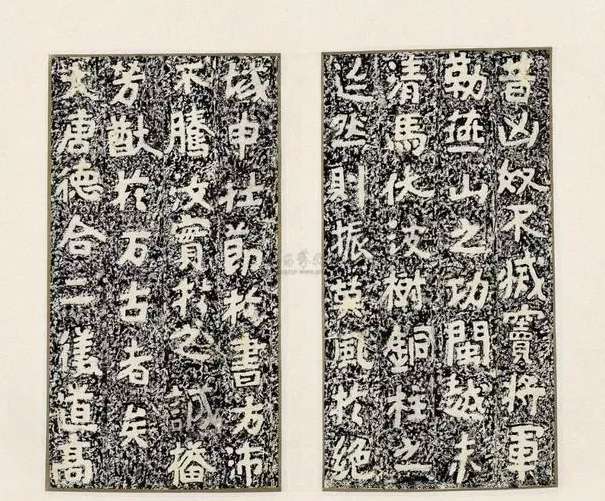 昔凶奴不滅竇將軍
勒燕山之功閩越未
清馬伏波樹銅柱之
迹然則振英風於絕
域申壯節於書方沛
不騰實於之誠播
芳猷於万古者矣
大唐德合二儀道高